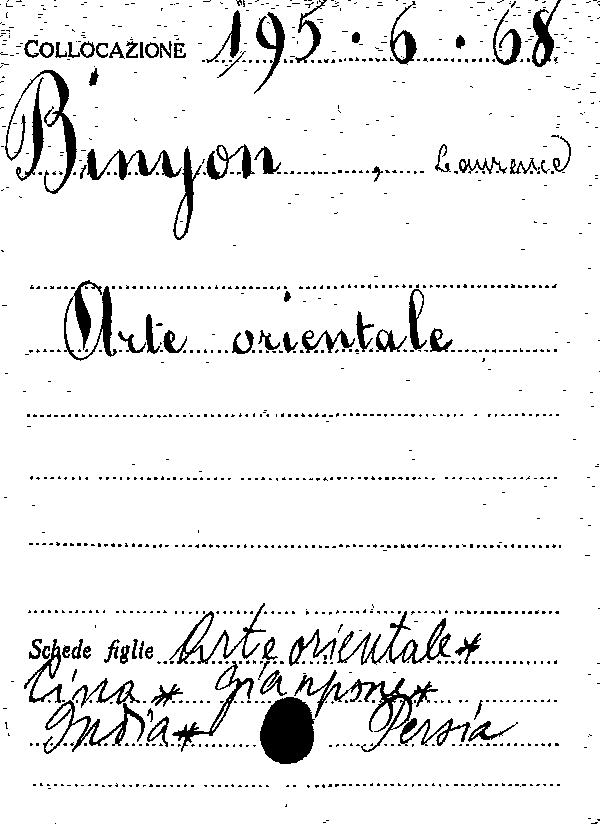 COLLOCAZIONE 195.6.68
Binyon, Laurence
Arte orientale
Schede figlie Arte orientale*
Cina * Gianpone*
India* Persia